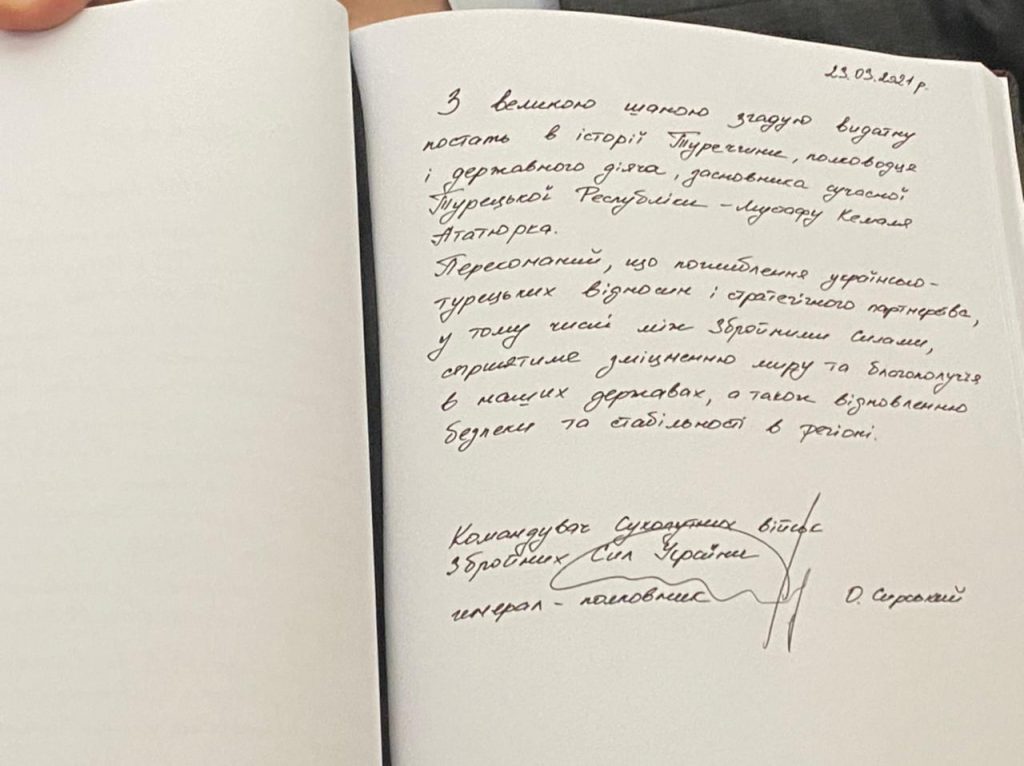 23.03.2021 р.
З великою шаною згадую видатну
постать в історії Туреччини, полководця
і державного діяча, засновника сучасної
Турецької Республіки – Мустафу Кемаля
Ататюрка.
Переконаний, що поглиблення українсько-
турецьких відносин і стратегічного партнерства,
у тому числі між Збройними Силами,
сприятиме зміцненню миру та благополуччя
в наших державах, а також відновленню
безпеки та стабільності в регіоні.
Командувач Сухопутних військ
Збройних Сил України
генерал-полковник О. Сирський